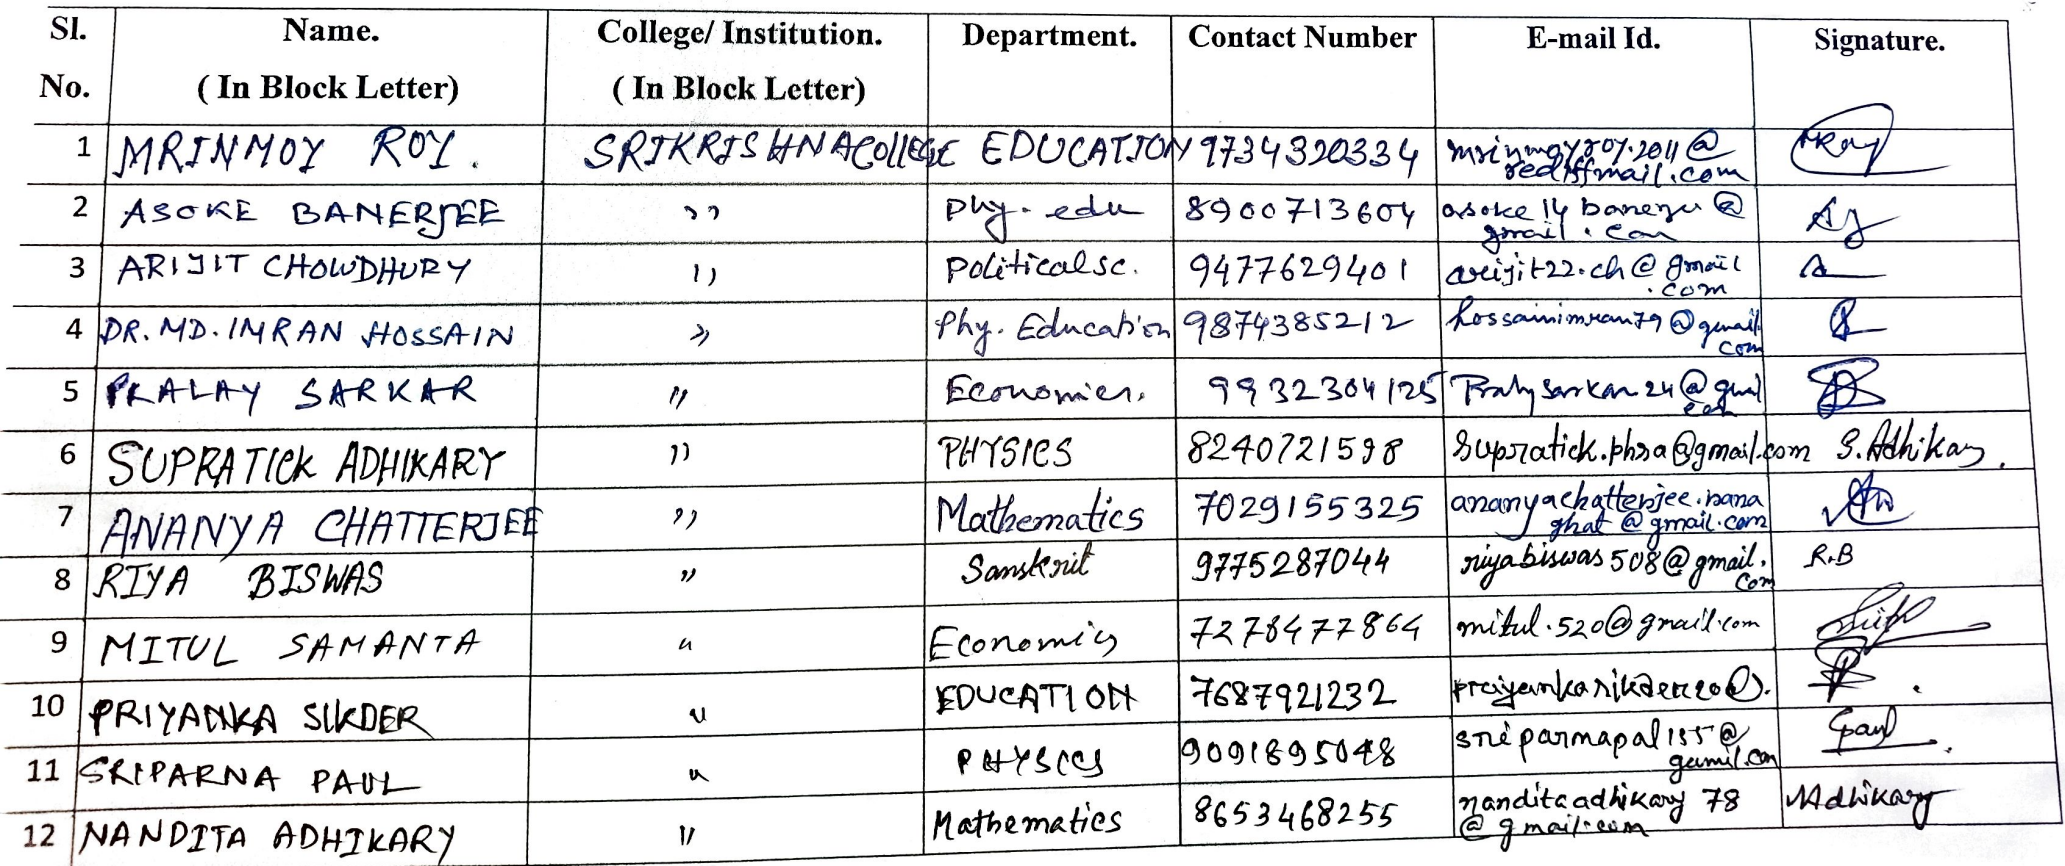 Sl. No. Name. ( In Block Letter) College/ Institution. ( In Block Letter) Department. Contact Number E-mail Id. Signature.
1 MRINMOY ROY. SRIKRISHNA COllEGE EDUCATION 9734320334 mrinmoyroy.2011@
rediffmail.com MRoy
2 ASOKE BANERJEE ,, Phy. edu 8900713604 asoke 14 @
gmail.com
3 ARIJIT CHOWDHURY ,, Political sc. 9477629401 arijit22.ch@gmail
.com
4 DR. MD. IMRAN HOSSAIN ,, Phy. Education 9874385212 hossainimran79@gmail.
com
5 PRALAY SARKAR ,, Economics. 9932304125
6 SUPRATICK ADHIKARY ,, PHYSICS 8240721598 Supratick.phsa@gmail.com S. Adhikary.
7 ANANYA CHATTERJEE ,, Mathematics 7029155325 ananyachatterjee.rana
ghat@gmail.com
8 RIYA BISWAS ,, Sanskrit 9775287044 riyabiswas508@gmail.
com R.B
9 MITUL SAMANTA ,, Economics 7278477864 mitul.520@gmail.com
10 PRIYANKA SIKDER ,, EDUCATION 7687921232
11 SRIPARNA PAUL ,, PHYSICS 9091895048
12 NANDITA ADHIKARY ,, Mathematics 8653468255 nanditaadhikary 78
@gmail.com NAdhikary